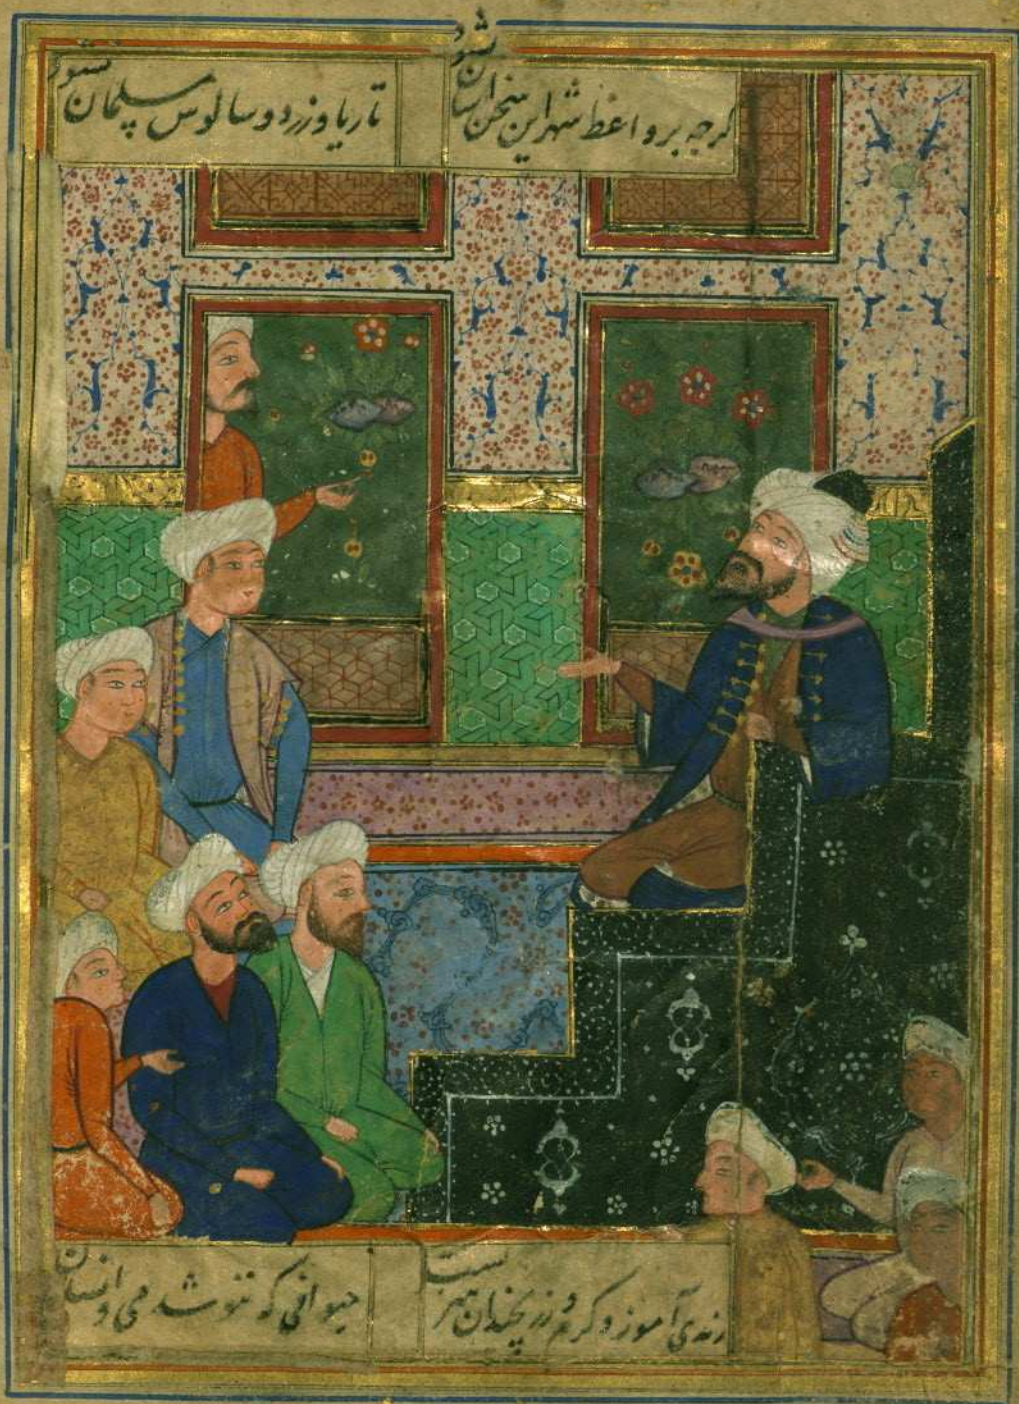 گرچه بر واعظ شهر این سخن آسان نشود
تا ریا ورزد و سالوس مسلمان نشود
رندی آموز و کرم ورز نچندان هنرست
حیوانی که ننوشد می و انسان